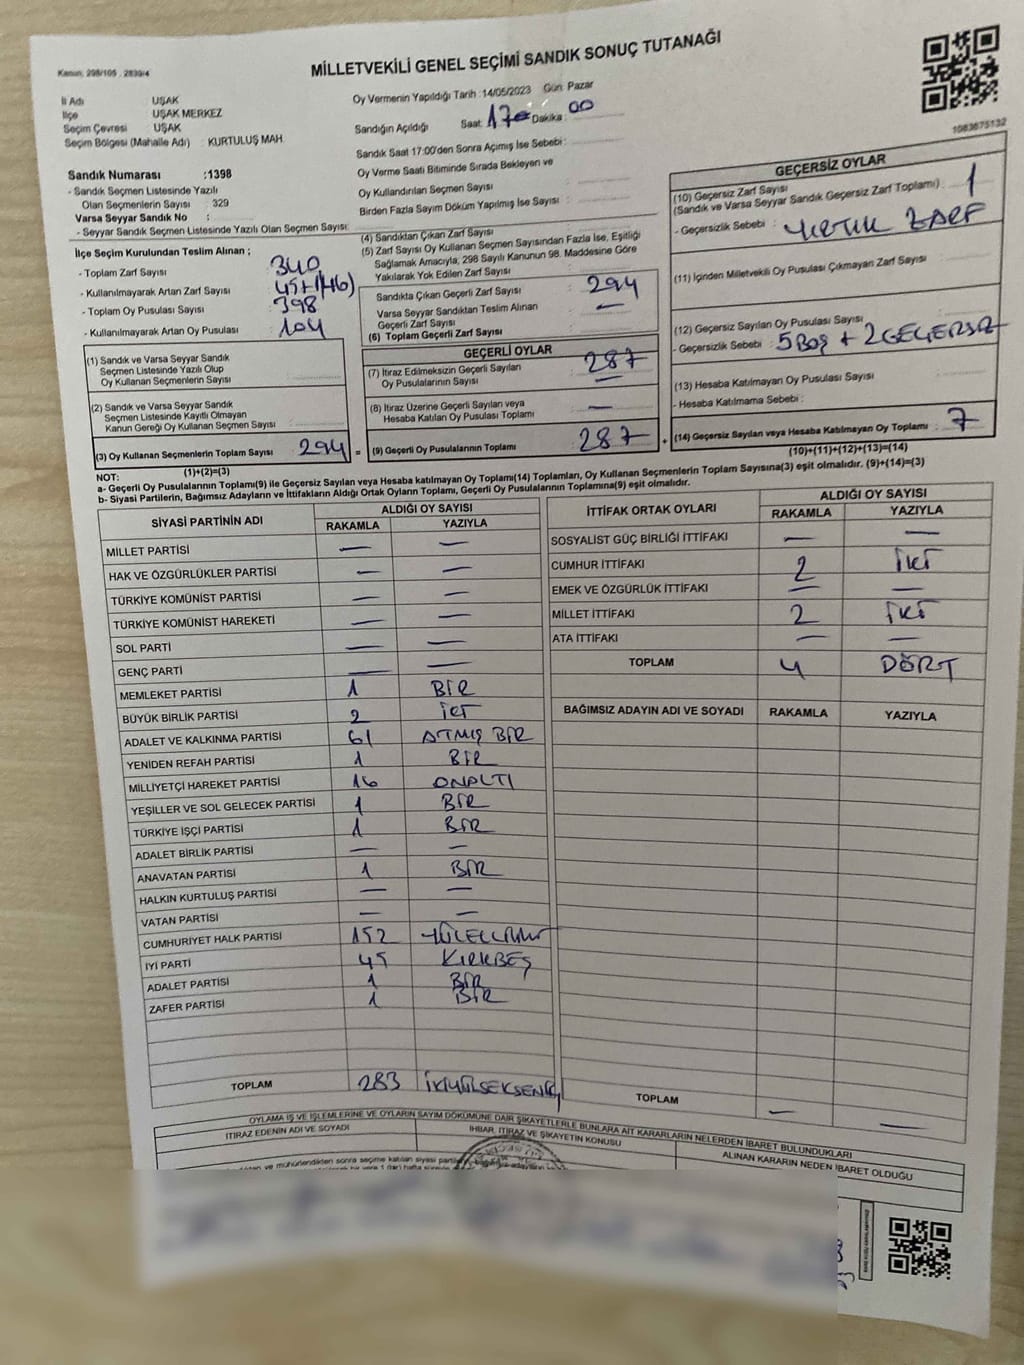 Kanun: 298/105 . 2839/4
MİLLETVEKİLİ GENEL SEÇİMİ SANDIK SONUÇ TUTANAĞI
1083675132
İl Adı UŞAK
İlçe UŞAK MERKEZ
Seçim Çevresi : UŞAK
Seçim Bölgesi (Mahalle Adı) : KURTULUŞ MAH
Sandık Numarası :1398
- Sandık Seçmen Listesinde Yazılı
Olan Seçmenlerin Sayısı : 329
Varsa Seyyar Sandık No :
- Seyyar Sandık Seçmen Listesinde Yazılı Olan Seçmen Sayısı:
Oy Vermenin Yapıldığı Tarih :14/05/2023 Gün: Pazar
Sandığın Açıldığı Saat: 17 Dakika : 00
Sandık Saat 17:00'den Sonra Açımış İse Sebebi :
Oy Verme Saati Bitiminde Sırada Bekleyen ve
Oy Kullandırılan Seçmen Sayısı
Birden Fazla Sayım Döküm Yapılmış İse Sayısı :
İlçe Seçim Kurulundan Teslim Alınan ;
- Toplam Zarf Sayısı 340
- Kullanılmayarak Artan Zarf Sayısı 45+1(46)
- Toplam Oy Pusulası Sayısı 398
- Kullanılmayarak Artan Oy Pusulası 104
(1) Sandık ve Varsa Seyyar Sandık
Seçmen Listesinde Yazılı Olup
Oy Kullanan Seçmenlerin Sayısı
(2) Sandık ve Varsa Seyyar Sandık
Seçmen Listesinde Kayıtlı Olmayan
Kanun Gereği Oy Kullanan Seçmen Sayısı :
(3) Oy Kullanan Seçmenlerin Toplam Sayısı 294 =
(1)+(2)=(3)
(4) Sandıktan Çıkan Zarf Sayısı
(5) Zarf Sayısı Oy Kullanan Seçmen Sayısından Fazla İse, Eşitliği
Sağlamak Amacıyla, 298 Sayılı Kanunun 98. Maddesine Göre
Yakılarak Yok Edilen Zarf Sayısı
Sandıkta Çıkan Geçerli Zarf Sayısı : 294
Varsa Seyyar Sandıktan Teslim Alınan
Geçerli Zarf Sayısı : —
(6) Toplam Geçerli Zarf Sayısı
GEÇERLİ OYLAR
(7) İtiraz Edilmeksizin Geçerli Sayılan
Oy Pusulalarının Sayısı : 287
(8) İtiraz Üzerine Geçerli Sayılan veya
Hesaba Katılan Oy Pusulası Toplamı : —
(9) Geçerli Oy Pusulalarının Toplamı : 287 +
GEÇERSİZ OYLAR
(10) Geçersiz Zarf Sayısı
(Sandık ve Varsa Seyyar Sandık Geçersiz Zarf Toplamı) : 1
- Geçersizlik Sebebi : YIRTIK ZARF
(11) İçinden Milletvekili Oy Pusulası Çıkmayan Zarf Sayısı
(12) Geçersiz Sayılan Oy Pusulası Sayısı
- Geçersizlik Sebebi : 5 BOŞ + 2 GEÇERSİZ
(13) Hesaba Katılmayan Oy Pusulası Sayısı
- Hesaba Katılmama Sebebi :
(14) Geçersiz Sayılan veya Hesaba Katılmayan Oy Toplamı : 7
(10)+(11)+(12)+(13)=(14)
NOT:
a- Geçerli Oy Pusulalarının Toplamı(9) ile Geçersiz Sayılan veya Hesaba katılmayan Oy Toplamı(14) Toplamları, Oy Kullanan Seçmenlerin Toplam Sayısına(3) eşit olmalıdır. (9)+(14)=(3)
b- Siyasi Partilerin, Bağımsız Adayların ve İttifakların Aldığı Ortak Oyların Toplamı, Geçerli Oy Pusulalarının Toplamına(9) eşit olmalıdır.
SİYASİ PARTİNİN ADI ALDIĞI OY SAYISI
RAKAMLA YAZIYLA
MİLLET PARTİSİ — —
HAK VE ÖZGÜRLÜKLER PARTİSİ — —
TÜRKİYE KOMÜNİST PARTİSİ — —
TÜRKİYE KOMÜNİST HAREKETİ — —
SOL PARTİ — —
GENÇ PARTİ — —
MEMLEKET PARTİSİ 1 BİR
BÜYÜK BİRLİK PARTİSİ 2 İKİ
ADALET VE KALKINMA PARTİSİ 61 ATMIŞ BİR
YENİDEN REFAH PARTİSİ 1 BİR
MİLLİYETÇİ HAREKET PARTİSİ 16 ONALTI
YEŞİLLER VE SOL GELECEK PARTİSİ 1 BİR
TÜRKİYE İŞÇİ PARTİSİ 1 BİR
ADALET BİRLİK PARTİSİ — —
ANAVATAN PARTİSİ 1 BİR
HALKIN KURTULUŞ PARTİSİ — —
VATAN PARTİSİ — —
CUMHURİYET HALK PARTİSİ 152
İYİ PARTİ 45 KIRKBEŞ
ADALET PARTİSİ 1 BİR
ZAFER PARTİSİ 1 BİR
TOPLAM 283
İTTİFAK ORTAK OYLARI ALDIĞI OY SAYISI
RAKAMLA YAZIYLA
SOSYALİST GÜÇ BİRLİĞİ İTTİFAKI — —
CUMHUR İTTİFAKI 2 İKİ
EMEK VE ÖZGÜRLÜK İTTİFAKI — —
MİLLET İTTİFAKI 2 İKİ
ATA İTTİFAKI — —
TOPLAM 4 DÖRT
BAĞIMSIZ ADAYIN ADI VE SOYADI RAKAMLA YAZIYLA
TOPLAM — —
OYLAMA İŞ VE İŞLEMLERİNE VE OYLARIN SAYIM DÖKÜMÜNE DAİR ŞİKAYETLERLE BUNLARA AİT KARARLARIN NELERDEN İBARET BULUNDUKLARI
İTİRAZ EDENİN ADI VE SOYADI
İHBAR, İTİRAZ VE ŞİKAYETİN KONUSU
ALINAN KARARIN NEDEN İBARET OLDUĞU